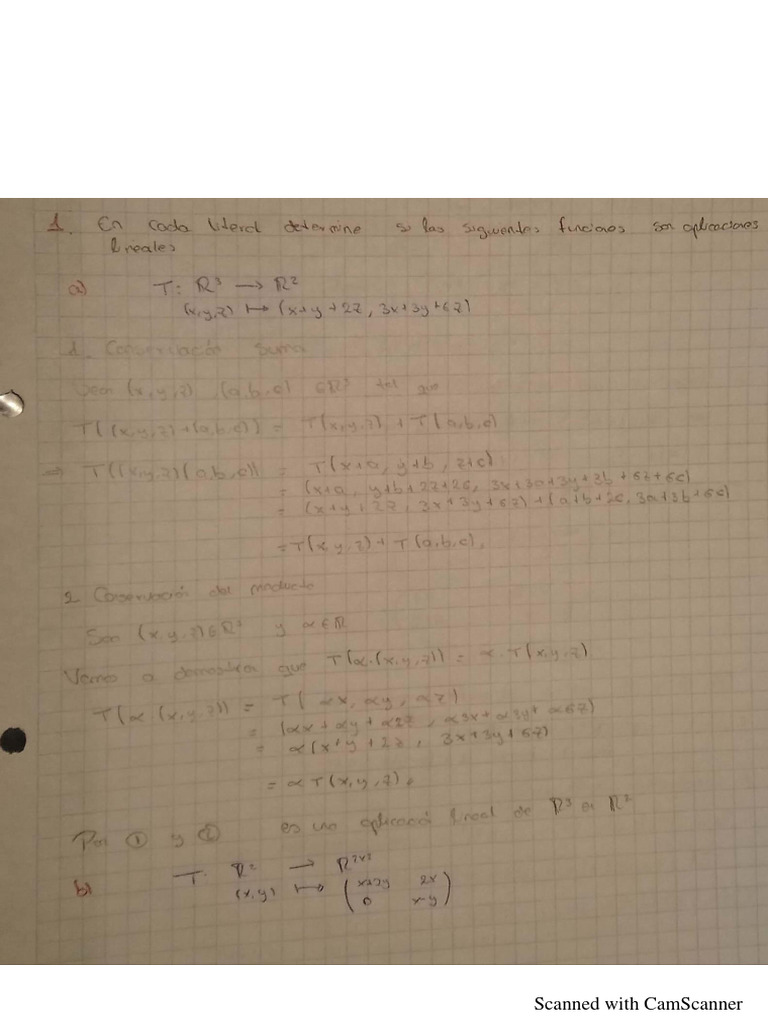 1. En cada literal determine si las siguientes funciones son aplicaciones
lineales
a) T: ℝ³ → ℝ²
(x,y,z) ↦ (x+y+2z, 3x+3y+6z)
1. Conservación suma
Sean (x,y,z), (a,b,c) ∈ ℝ³ tal que
T((x,y,z)+(a,b,c)) = T(x,y,z) + T(a,b,c)
⇒ T((x,y,z)(a,b,c)) = T(x+a, y+b, z+c)
= (x+a, y+b+2z+2c, 3x+3a+3y+3b+6z+6c)
= (x+y+2z, 3x+3y+6z) + (a+b+2c, 3a+3b+6c)
= T(x,y,z) + T(a,b,c),
2. Conservación del producto
Sean (x,y,z) ∈ ℝ³ y α ∈ ℝ
Vamos a demostrar que T(α·(x,y,z)) = α·T(x,y,z)
T(α·(x,y,z)) = T(αx, αy, αz)
= (αx+αy+α2z, α3x+α3y+α6z)
= α(x+y+2z, 3x+3y+6z)
= αT(x,y,z).
Por ① y ② es una aplicació lineal de ℝ³ en ℝ²
b) T: ℝ² → ℝ²ˣ²
(x,y) ↦ (x+2y 2x
0 x-y)
Scanned with CamScanner